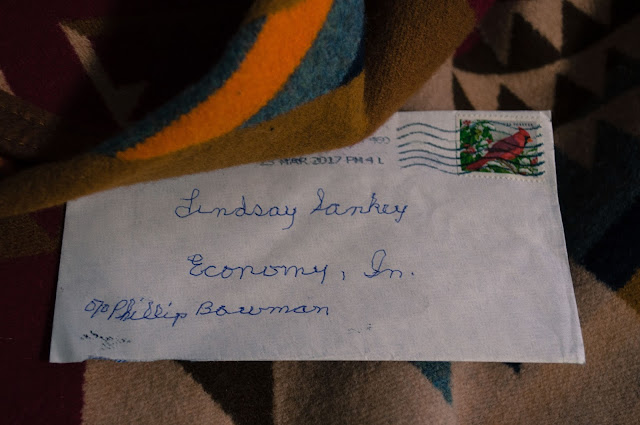 MAR 2017 PM 4 L
Lindsay Sankey
Economy, In.
c/o Phillip Bowman